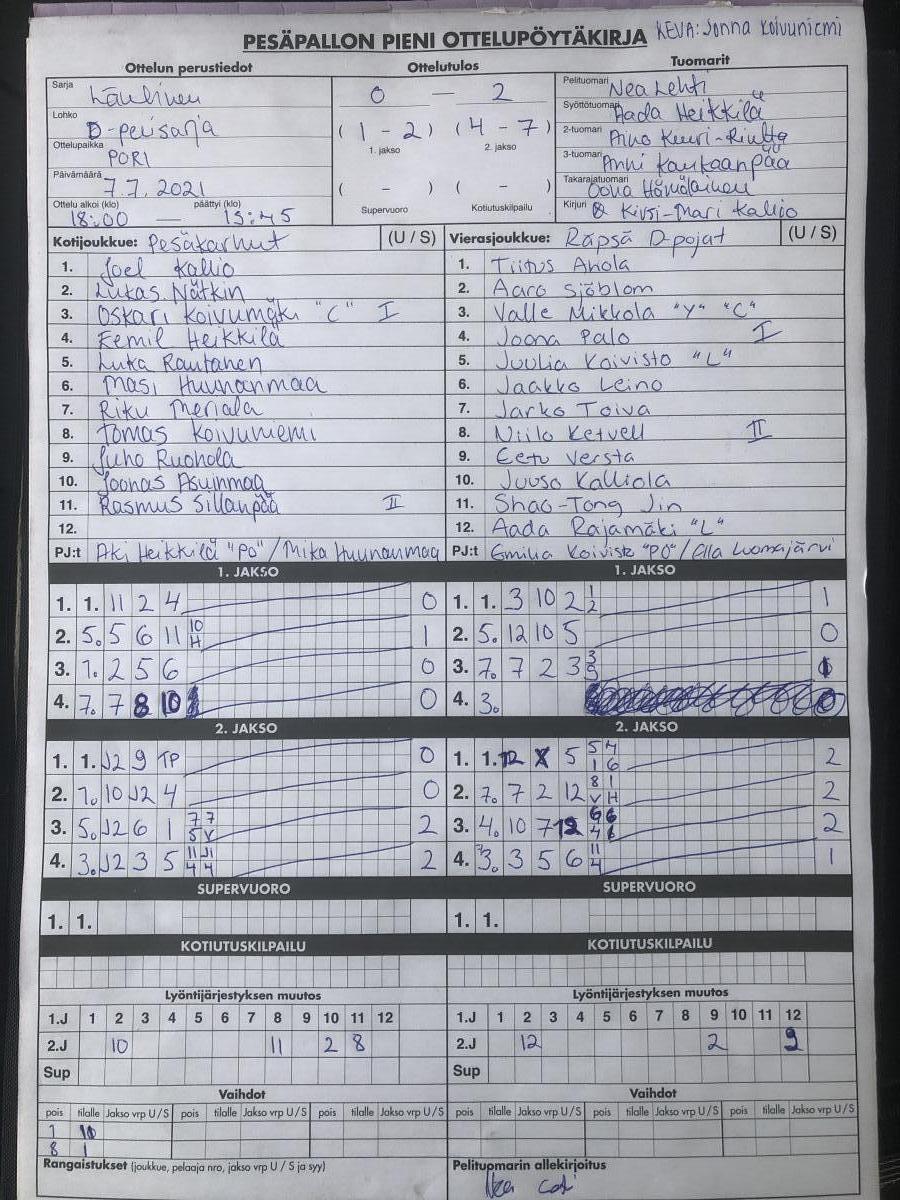 PESÄPALLON PIENI OTTELUPÖYTÄKIRJA KEVA: Jonna Koivuniemi
Ottelun perustiedot Ottelutulos Tuomarit
Sarja Läntinen 0 — 2 Pelituomari Nea Lehti
Lohko D-perisarja (1 - 2) (4 - 7) Syöttötuomari Aada Heikkilä
1. jakso 2. jakso 2-tuomari Aino
Ottelupaikka PORI 3-tuomari Anni Kankaanpää
Päivämäärä 7.7.2021 ( - ) ( - ) Takarajatuomari Oona
Ottelu alkoi (klo) päättyi (klo) Supervuoro Kotiutuskilpailu
18:00 — 19:45 Kirjuri Kirsi-Mari Kallio
Kotijoukkue: Pesäkarhut (U / S) Vierasjoukkue: Räpsä D-pojat (U / S)
1. Joel Kallio 1. Tiitus Ahola
2. Lukas Nätkin 2. Aaro Sjöblom
3. Oskari Koivumäki "C" I 3. Valle Mikkola "Y" "C"
4. Eemil Heikkilä 4. Joona Palo I
5. Luka Rautanen 5. Juulia Koivisto "L"
6. Masi Huunanmaa 6. Jaakko Leino
7. Riku Meriala 7. Jarko Toiva
8. Tomas Koivuniemi 8. Niilo Ketvell II
9. Juho Ruohola 9. Eetu Versta
10. Joonas Asuinmaa 10. Juuso Kalliola
11. Rasmus Sillanpää II 11. Shao-Tong Jin
12. 12. Aada Rajamäki "L"
PJ:t Aki Heikkilä "PO" / Mika Huunanmaa PJ:t Emilia Koivisto "PO" / Ella Luomajärvi
1. JAKSO 1. JAKSO
1. 1. 11 2 4 0 1. 1. 3 10 2 1 2 1
2. 5. 5 6 11 10 H 1 2. 5. 12 10 5 0
3. 1. 2 5 6 0 3. 7. 7 2 3 3 5 1
4. 7. 7 8 10 0 4. 3. 0
2. JAKSO 2. JAKSO
1. 1. J2 9 TP 0 1. 1. 12 X 5 5 1 4 6 2
2. 1. 10 J2 4 0 2. 7. 7 2 12 8 V 1 H 2
3. 5. J2 6 1 7 5 7 V 2 3. 4. 10 7 12 6 4 6 6 2
4. 3. J2 3 5 11 4 J1 4 2 4. 3. 3 5 6 11 4 1
SUPERVUORO SUPERVUORO
1. 1. 1. 1.
KOTIUTUSKILPAILU KOTIUTUSKILPAILU
Lyöntijärjestyksen muutos Lyöntijärjestyksen muutos
1.J 1 2 3 4 5 6 7 8 9 10 11 12 1.J 1 2 3 4 5 6 7 8 9 10 11 12
2.J 10 11 2 8 2.J 12 2 9
Sup Sup
Vaihdot Vaihdot
pois tilalle Jakso vrp U / S pois tilalle Jakso vrp U / S pois tilalle Jakso vrp U / S pois tilalle Jakso vrp U / S pois tilalle Jakso vrp U / S pois tilalle Jakso vrp U / S
1 10
8 1
Rangaistukset (joukkue, pelaaja nro, jakso vrp U / S ja syy) Pelituomarin allekirjoitus